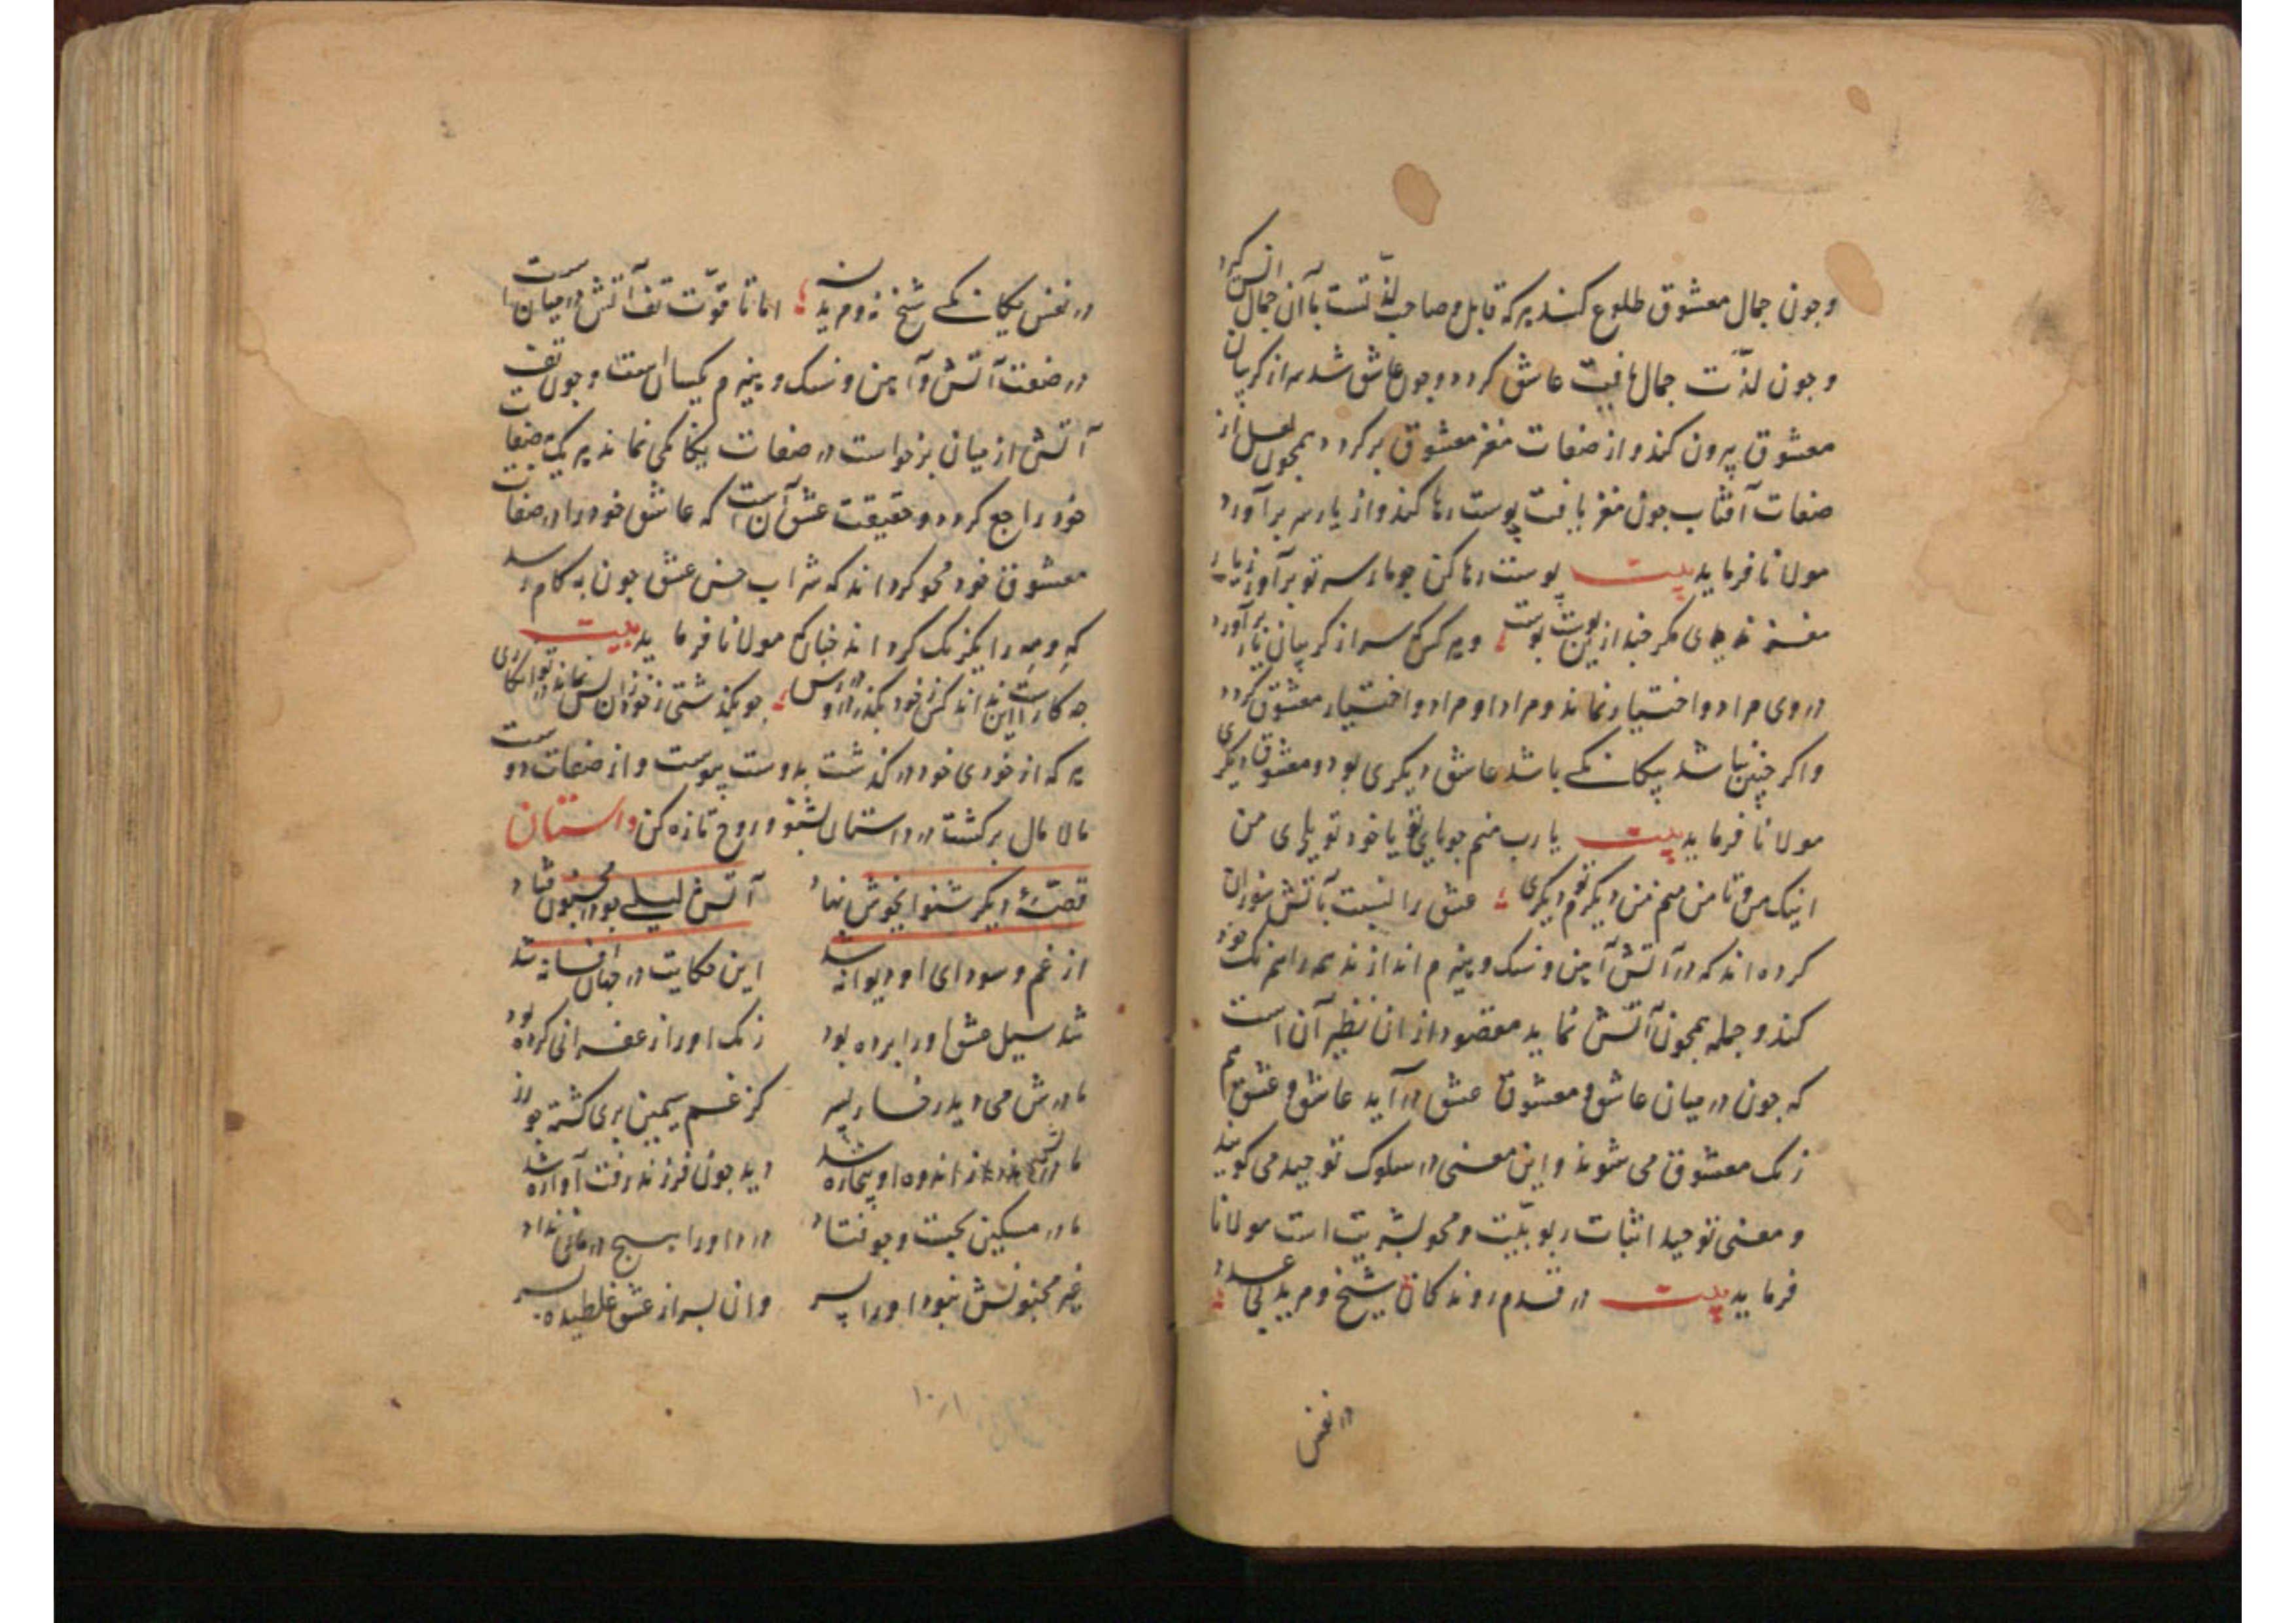 وجون جمال معشوق طلوع کند هرکه قابل و صاحب لذّتست با آن جمال انس کیرد
وجون لذّت جمال یافت عاشق کردد وجون عاشق شد سر از کریبان
معشوق بیرون کند و از صفات مغز معشوق برکردد همجون لعل از
صفات آفتاب جون مغز یافت پوست رها کند و از یار سر برآورد
مولانا فرماید بیت پوست رها کن جو مار سر تو برآور زیار
مغز نداری مکر جند ازین پوست پوست وهرکس سر از کریبان یار برآورد
در وی مراد و اختیار نماند و مراد او مراد و اختیار معشوق کردد
واکر جنین نباشد بیکانکے باشد عاشق دیکری بود و معشوق دیکری
مولانا فرماید بیت یا رب منم جویای تو یا خود تویی جویای من
اینک من و تا من منم من دیکرم تو دیکری عشق را نسبت بآتش سوزان
کرده اند که در آتش آهن و سنک و هیزم اندازند همه را همرنک خود
کند و جمله همجون آتش نماید مقصود ازان نظیر آن است
که جون در میان عاشق و معشوق عشق درآید عاشق و عشق هم
رنک معشوق می شوند و این معنی در سلوک توحید می کویند
و معنی توحید اثبات ربوبیّت و محو بشریت است مولانا
فرماید بیت در قدم روندکان شیخ و مرید بی عدد
در نفس
در نفس یکانکے شیخ نه و مرید نه اما تا قوّت تف آتش در میان است
در صفت آتش و آهن و سنک و هیزم یکسان است وجون تف
آتش از میان برخواست در صفات یکانکی نماند هر یک بصفات
خود راجع کردد و حقیقت عشق آن است که عاشق خود را در صفات
معشوق خود محو کرداند که شراب حسن عشق جون به کام رسد
که و مه را یکرنک کرداند جنانک مولانا فرماید بیت
جه کارست این نداند کس ز خود بکذر در او رس جو بکذشتی ز خود زان پس نماند در تو انکاری
هرکه از خودی خود درکذشت بدوست پیوست و از صفات دوست
مالامال برکشت در داستان بشنو و روح تازه کن داستان
قصّهٔ دیکر شنو ای خوش نهاد آتش لیلے جو در مجنون فتاد
از غم و سودای او دیوانه شد این حکایت در جهان افسانه شد
شد سیل عشق او را برده بود رنک او را زعفرانی کرده بود
مادرش می دید رخسار پسر کز غم سیمین بری کشته جو زر
مادرش از اندوه او بیچاره شد دید جون فرزند رفت آواره شد
مادر مسکین بجست و جو فتاد درد او را هیچ درمانی نداد
غیر مجنونش نبود او را پسر وان پسر از عشق غلطیده بسر